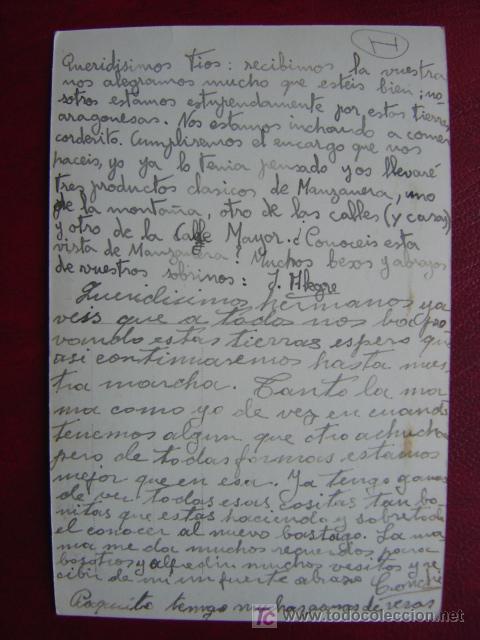 H
Queridisimos tios: recibimos la vuestra
nos alegramos mucho que esteis bien; no-
sotros estamos estupendamente por estas tierras
aragonesas. Nos estamos inchando a comer
corderito. Cumpliremos el encargo que nos
haceis, yo ya lo tenia pensado yos llevaré
tres productos clasicos de Manzanera, uno
de la montaña, otro de las calles (y casas)
y otro de la Calle Mayor. ¿Conoceis esta
vista de Manzanera? Muchos besos y abrazos
de vuestros sobrinos: J. Alegre
Queridisimos hermanos ya
veis que a todos nos ba pro
vando estas tierras espero que
asi continuaremos hasta nues
tra marcha. Tanto la ma
ma como yo de vez en cuando
tenemos algun que otro achucha
pero de todas formas estamos
mejor que en esa. Ya tengo ganas
de ver todas esas cositas tan bo
nitas que estas haciendo y sobretodo
el conocer al nuevo bastago. La ma
ma me da muchos recuerdos para
bosotros y al pedin muchos vesitos y re
cibir de mi un fuerte abrazo Conchi
Paquito tengo muchas ganas de veros
todocoleccion.net